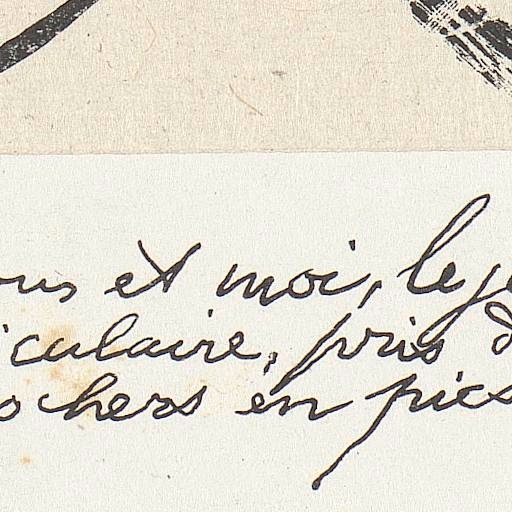 ous et moi, le je
iculaire, pris d
ochers en pics